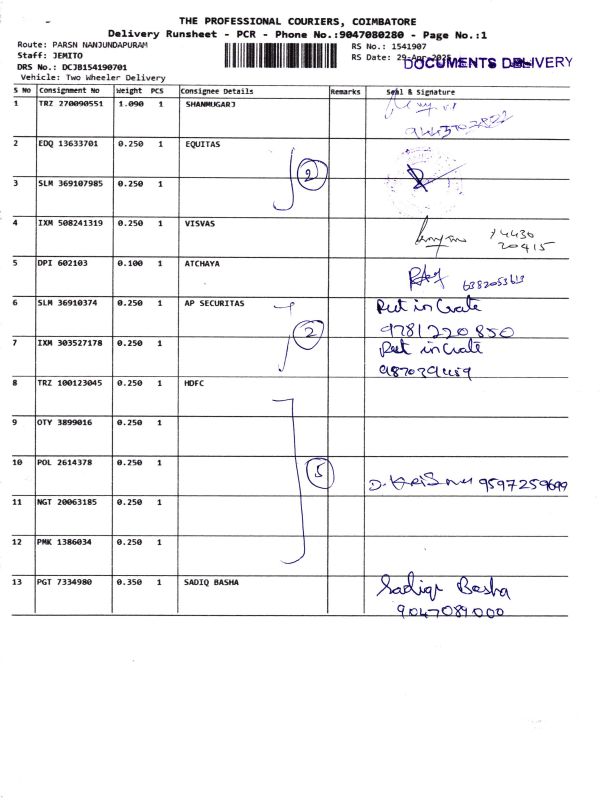 THE PROFESSIONAL COURIERS, COIMBATORE
Delivery Runsheet - PCR - Phone No.:9047080280 - Page No.:1
Route: PARSN NANJUNDAPURAM
RS No.: 1541907
Staff: JEMITO
RS Date: 29-Apr-2025
DOCUMENTS DELIVERY
DRS No.: DCJB154190701
Vehicle: Two Wheeler Delivery
S No Consignment No Weight PCS Consignee Details Remarks Seal & Signature
1 TRZ 270090551 1.090 1 SHANMUGARJ
2 EDQ 13633701 0.250 1 EQUITAS
2
3 SLM 369107985 0.250 1
4 IXM 508241319 0.250 1 VISVAS
74430
20415
5 DPI 602103 0.100 1 ATCHAYA
6382053613
6 SLM 36910374 0.250 1 AP SECURITAS Put in Crate
9781220850
2
7 IXM 303527178 0.250 1 Put in Crate
8 TRZ 100123045 0.250 1 HDFC
9 OTY 3899016 0.250 1
10 POL 2614378 0.250 1
5
9597259699
11 NGT 20063185 0.250 1
12 PMK 1386034 0.250 1
13 PGT 7334980 0.350 1 SADIQ BASHA Sadiq Basha
9047089000